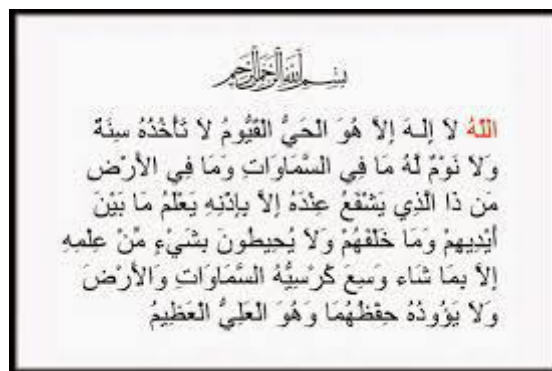 بسم الله الرحمن الرحيم
اللهُ لاَ إِلَـهَ إِلاَّ هُوَ الْحَيُّ الْقَيُّومُ لاَ تَأْخُذُهُ سِنَةٌ
وَلاَ نَوْمٌ لَّهُ مَا فِي السَّمَاوَاتِ وَمَا فِي الأَرْضِ
مَن ذَا الَّذِي يَشْفَعُ عِنْدَهُ إِلاَّ بِإِذْنِهِ يَعْلَمُ مَا بَيْنَ
أَيْدِيهِمْ وَمَا خَلْفَهُمْ وَلاَ يُحِيطُونَ بِشَيْءٍ مِّنْ عِلْمِهِ
إِلاَّ بِمَا شَاء وَسِعَ كُرْسِيُّهُ السَّمَاوَاتِ وَالأَرْضَ
وَلاَ يَؤُودُهُ حِفْظُهُمَا وَهُوَ الْعَلِيُّ الْعَظِيمُ